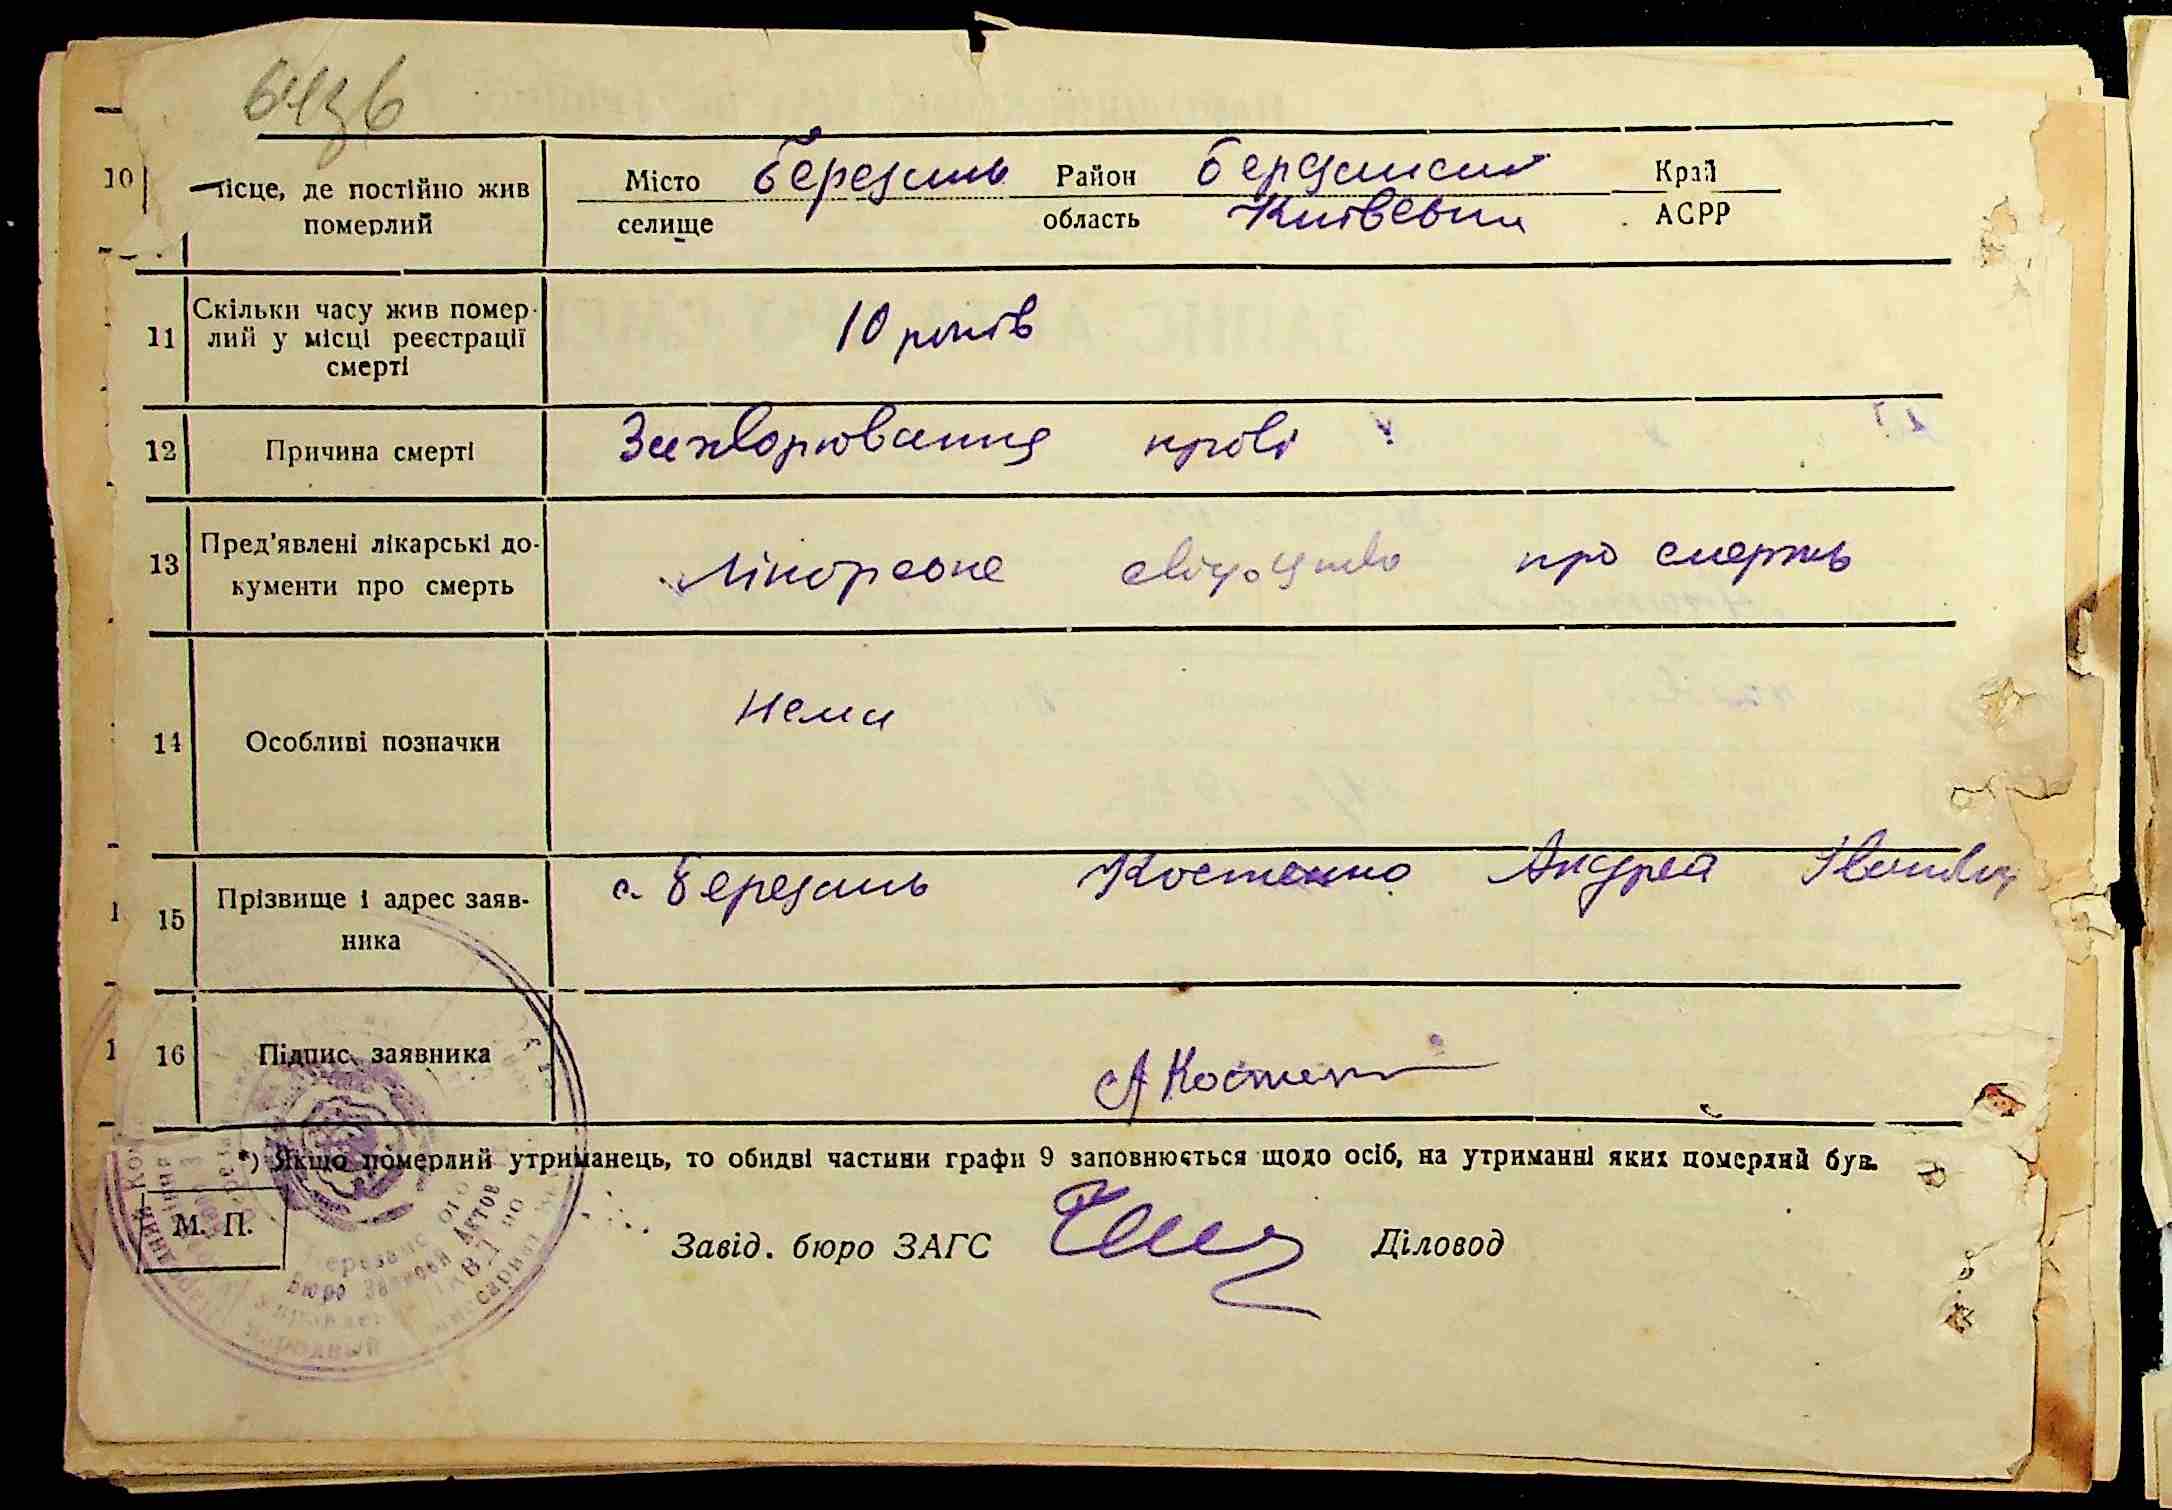 10 місце, де постійно жив Місто Березань Район Березанский Край
померлий селище область Київська АСРР
11 Скільки часу жив помер-
лий у місці реєстрації 10 років
смерті
12 Причина смерті Захворювання крові
13 Пред'явлені лікарські до-
кументи про смерть Лікарське свідоцтво про смерть
14 Особливі позначки Нема
15 Прізвище і адрес заяв- с. Березань Костенко Андрей
ника
16 Підпис заявника А Костенк
*) Якщо померлий утриманець, то обидві частини графи 9 заповнюється щодо осіб, на утриманні яких померлий був.
М. П.
Завід. бюро ЗАГС Діловод